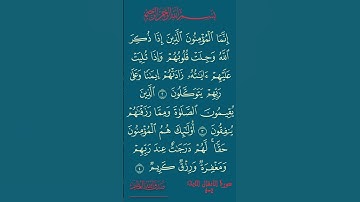 بسم الله الرحمن الرحيم
إِنَّمَا ٱلْمُؤْمِنُونَ ٱلَّذِينَ إِذَا ذُكِرَ
ٱللَّهُ وَجِلَتْ قُلُوبُهُمْ وَإِذَا تُلِيَتْ
عَلَيْهِمْ ءَايَٰتُهُۥ زَادَتْهُمْ إِيمَٰنًا وَعَلَىٰ
رَبِّهِمْ يَتَوَكَّلُونَ ٢ ٱلَّذِينَ
يُقِيمُونَ ٱلصَّلَوٰةَ وَمِمَّا رَزَقْنَٰهُمْ
يُنفِقُونَ ٣ أُو۟لَٰٓئِكَ هُمُ ٱلْمُؤْمِنُونَ
حَقًّا ۚ لَّهُمْ دَرَجَٰتٌ عِندَ رَبِّهِمْ
وَمَغْفِرَةٌ وَرِزْقٌ كَرِيمٌ ٤
سورة الأنفال